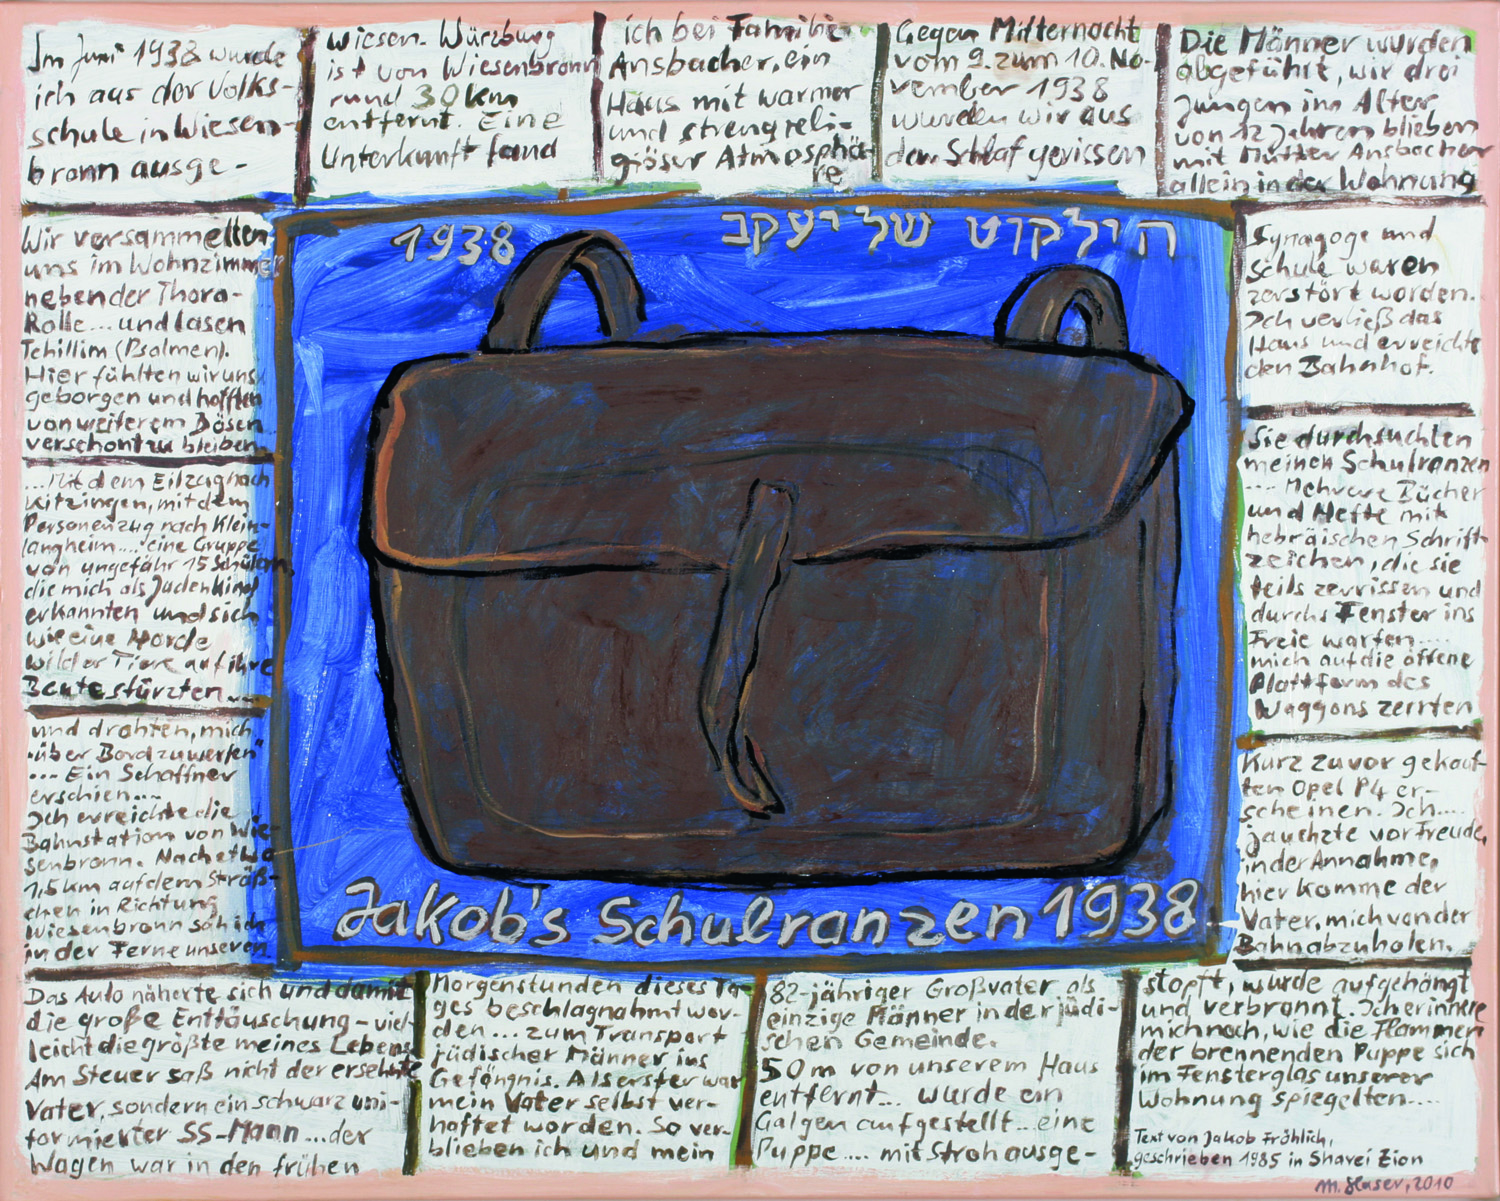 Im Juni 1938 wurde
ich aus der Volks-
schule in Wiesen-
bronn ausge-
wiesen. Würzburg
ist von Wiesenbronn
rund 30 km
entfernt. Eine
Unterkunft fand
ich bei Familie
Ansbacher, ein
Haus mit warmer
und streng reli-
giöser Atmosphä-
re
Gegen Mitternacht
vom 9. zum 10. No-
vember 1938
wurden wir aus
dem Schlaf gerissen
Die Männer wurden
abgeführt, wir drei
Jungen im Alter
von 12 Jahren blieben
mit Mutter Ansbacher
allein in der Wohnung
1938
הילקוט של יעקב
Wir versammelten
uns im Wohnzimmer
neben der Thora-
Rolle... und lasen
Tehillim (Psalmen).
Hier fühlten wir uns
geborgen und hofften
von weiterem Bösen
verschont zu bleiben.
Synagoge und
Schule waren
zerstört worden.
Ich verließ das
Haus und erreichte
den Bahnhof.
...Mit dem Eilzug nach
Kitzingen, mit dem
Personenzug nach Klein-
langheim.... eine Gruppe
von ungefähr 15 Schülern,
die mich als Judenkind
erkannten und sich
wie eine Horde
wilder Tiere auf ihre
Beute stürzten....
Sie durchsuchten
meinen Schulranzen
.... Mehrere Bücher
und Hefte mit
hebräischen Schrift-
zeichen, die sie
teils zerrissen und
durchs Fenster ins
Freie warfen....
mich auf die offene
Plattform des
Waggons zerrten
und drohten, mich
"über Bord zu werfen"
... Ein Schaffner
erschien....
Ich erreichte die
Bahnstation von Wie-
senbronn. Nach etwa
1,5 km auf dem Sträß-
chen in Richtung
Wiesenbronn sah ich
in der Ferne unseren
Kurz zuvor gekauf-
ten Opel P4 er-
scheinen. Ich....
jauchzte vor Freude,
in der Annahme,
hier komme der
Vater, mich von der
Bahn abzuholen.
Jakob's Schulranzen 1938
Das Auto näherte sich und damit
die große Enttäuschung - viel-
leicht die größte meines Lebens
Am Steuer saß nicht der ersehnte
Vater, sondern ein schwarz uni-
formierter SS-Mann...der
Wagen war in den frühen
Morgenstunden dieses Ta-
ges beschlagnahmt wor-
den... zum Transport
jüdischer Männer ins
Gefängnis. Als erster war
mein Vater selbst ver-
haftet worden. So ver-
blieben ich und mein
82-jähriger Großvater als
einzige Männer in der jüdi-
schen Gemeinde.
50 m von unserem Haus
entfernt... wurde ein
Galgen aufgestellt...eine
Puppe.... mit Stroh ausge-
stopft, wurde aufgehängt
und verbrannt. Ich erinnere
mich noch, wie die Flammen
der brennenden Puppe sich
im Fensterglas unserer
Wohnung spiegelten....
Text von Jakob Fröhlich,
geschrieben 1985 in Shavei Zion
2010